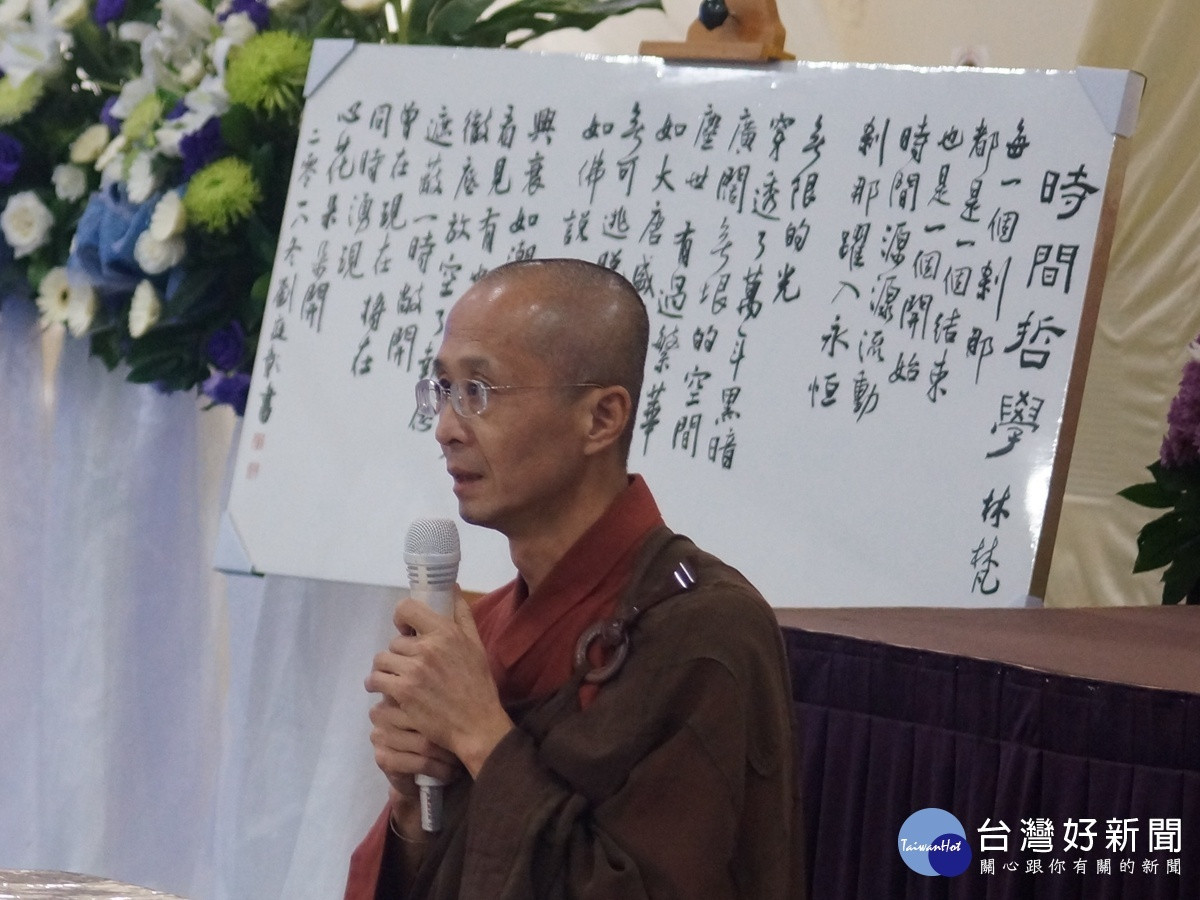 時間哲學 林梵
每一個剎那
都是一個結束
也是一個開始
時間源源流動
剎那躍入永恒
無限的光
穿透了萬年黑暗
廣闊無垠的空間
塵世 有過繁華
如大唐盛
無可逃
如佛說
興衰如潮
看見 有
徹底放空了
遮蔽一時敞開
曾在 現在 將在
同時湧現
心花朵朵開
二零一六冬 劉 書
台灣好新聞
TaiwanHot
關心跟你有關的新聞